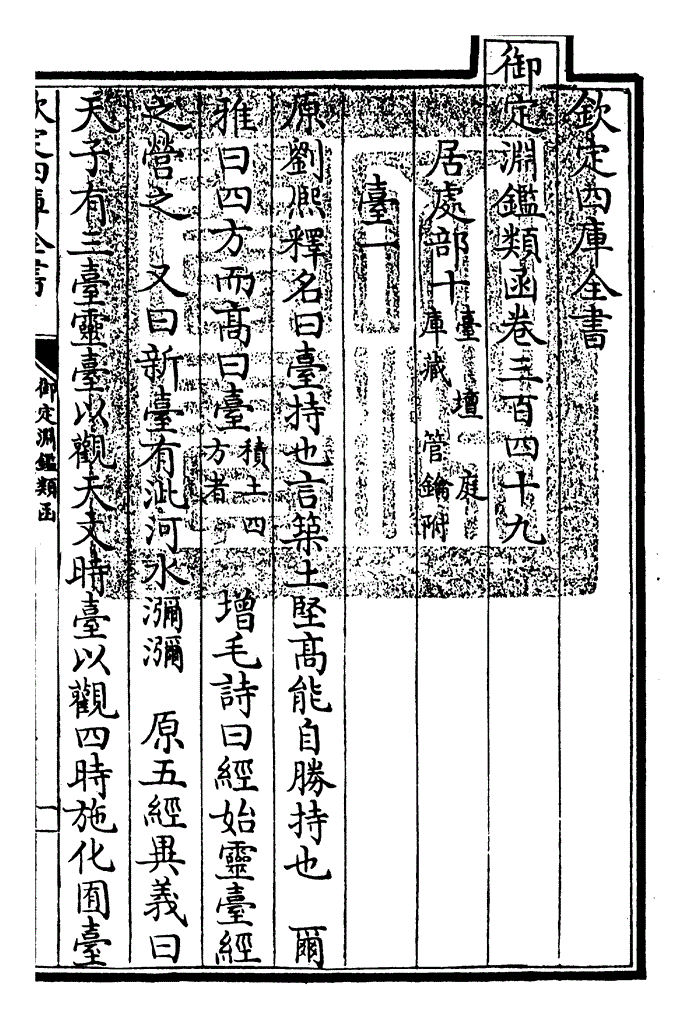 欽定四庫全書
御定淵鑑類函卷三百四十九
居處部十 臺 壇 庭
庫藏 管鑰附
臺一
原劉熈釋名曰臺持也言築土堅髙能自勝持也 爾
雅曰四方而髙曰臺 積土四方者 增毛詩曰經始靈臺經
之營之 又曰新臺有泚河水瀰瀰 原五經異義曰
天子有三臺靈臺以觀天文時臺以觀四時施化囿臺
欽定四庫全書
御定淵鑑類函
一